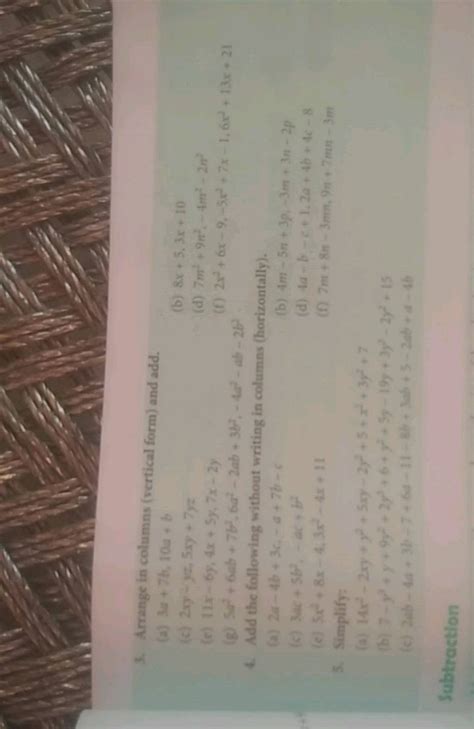 3. Arrange in columns (vertical form) and add.
(a) 3a + 7b, 10a + b (b) 8x + 5, 3x + 10
(c) 2xy – yz, 5xy + 7yz (d) 7m² + 9n², – 4m² – 2n²
(e) 11x – 6y, 4x + 5y, 7x – 2y (f) 2x² + 6x – 9, –5x² + 7x – 1, 6x² + 13x + 21
(g) 5a² + 6ab + 7b², 6a² – 2ab + 3b², – 4a² – ab – 2b²
4. Add the following without writing in columns (horizontally).
(a) 2a – 4b + 3c, – a + 7b – c (b) 4m – 5n + 3p, –3m + 3n – 2p
(c) 3ac + 5b², – ac + b² (d) 4a – b – c + 1, 2a + 4b + 4c – 8
(e) 5x² + 8x – 4, 3x² – 4x + 11 (f) 7m + 8n – 3mn, 9n + 7mn – 3m
5. Simplify:
(a) 14x² – 2xy + y² + 5xy – 2y² + 5 + x² + 3y² + 7
(b) 7 – y³ + y + 9y² + 2y³ + 6 + y² + 5y – 19y + 3y³ – 2y² + 15
(c) 2ab – 4a + 3b – 7 + 6a – 11 – 8b + 3ab + 5 – 2ab + a – 4b
Subtraction